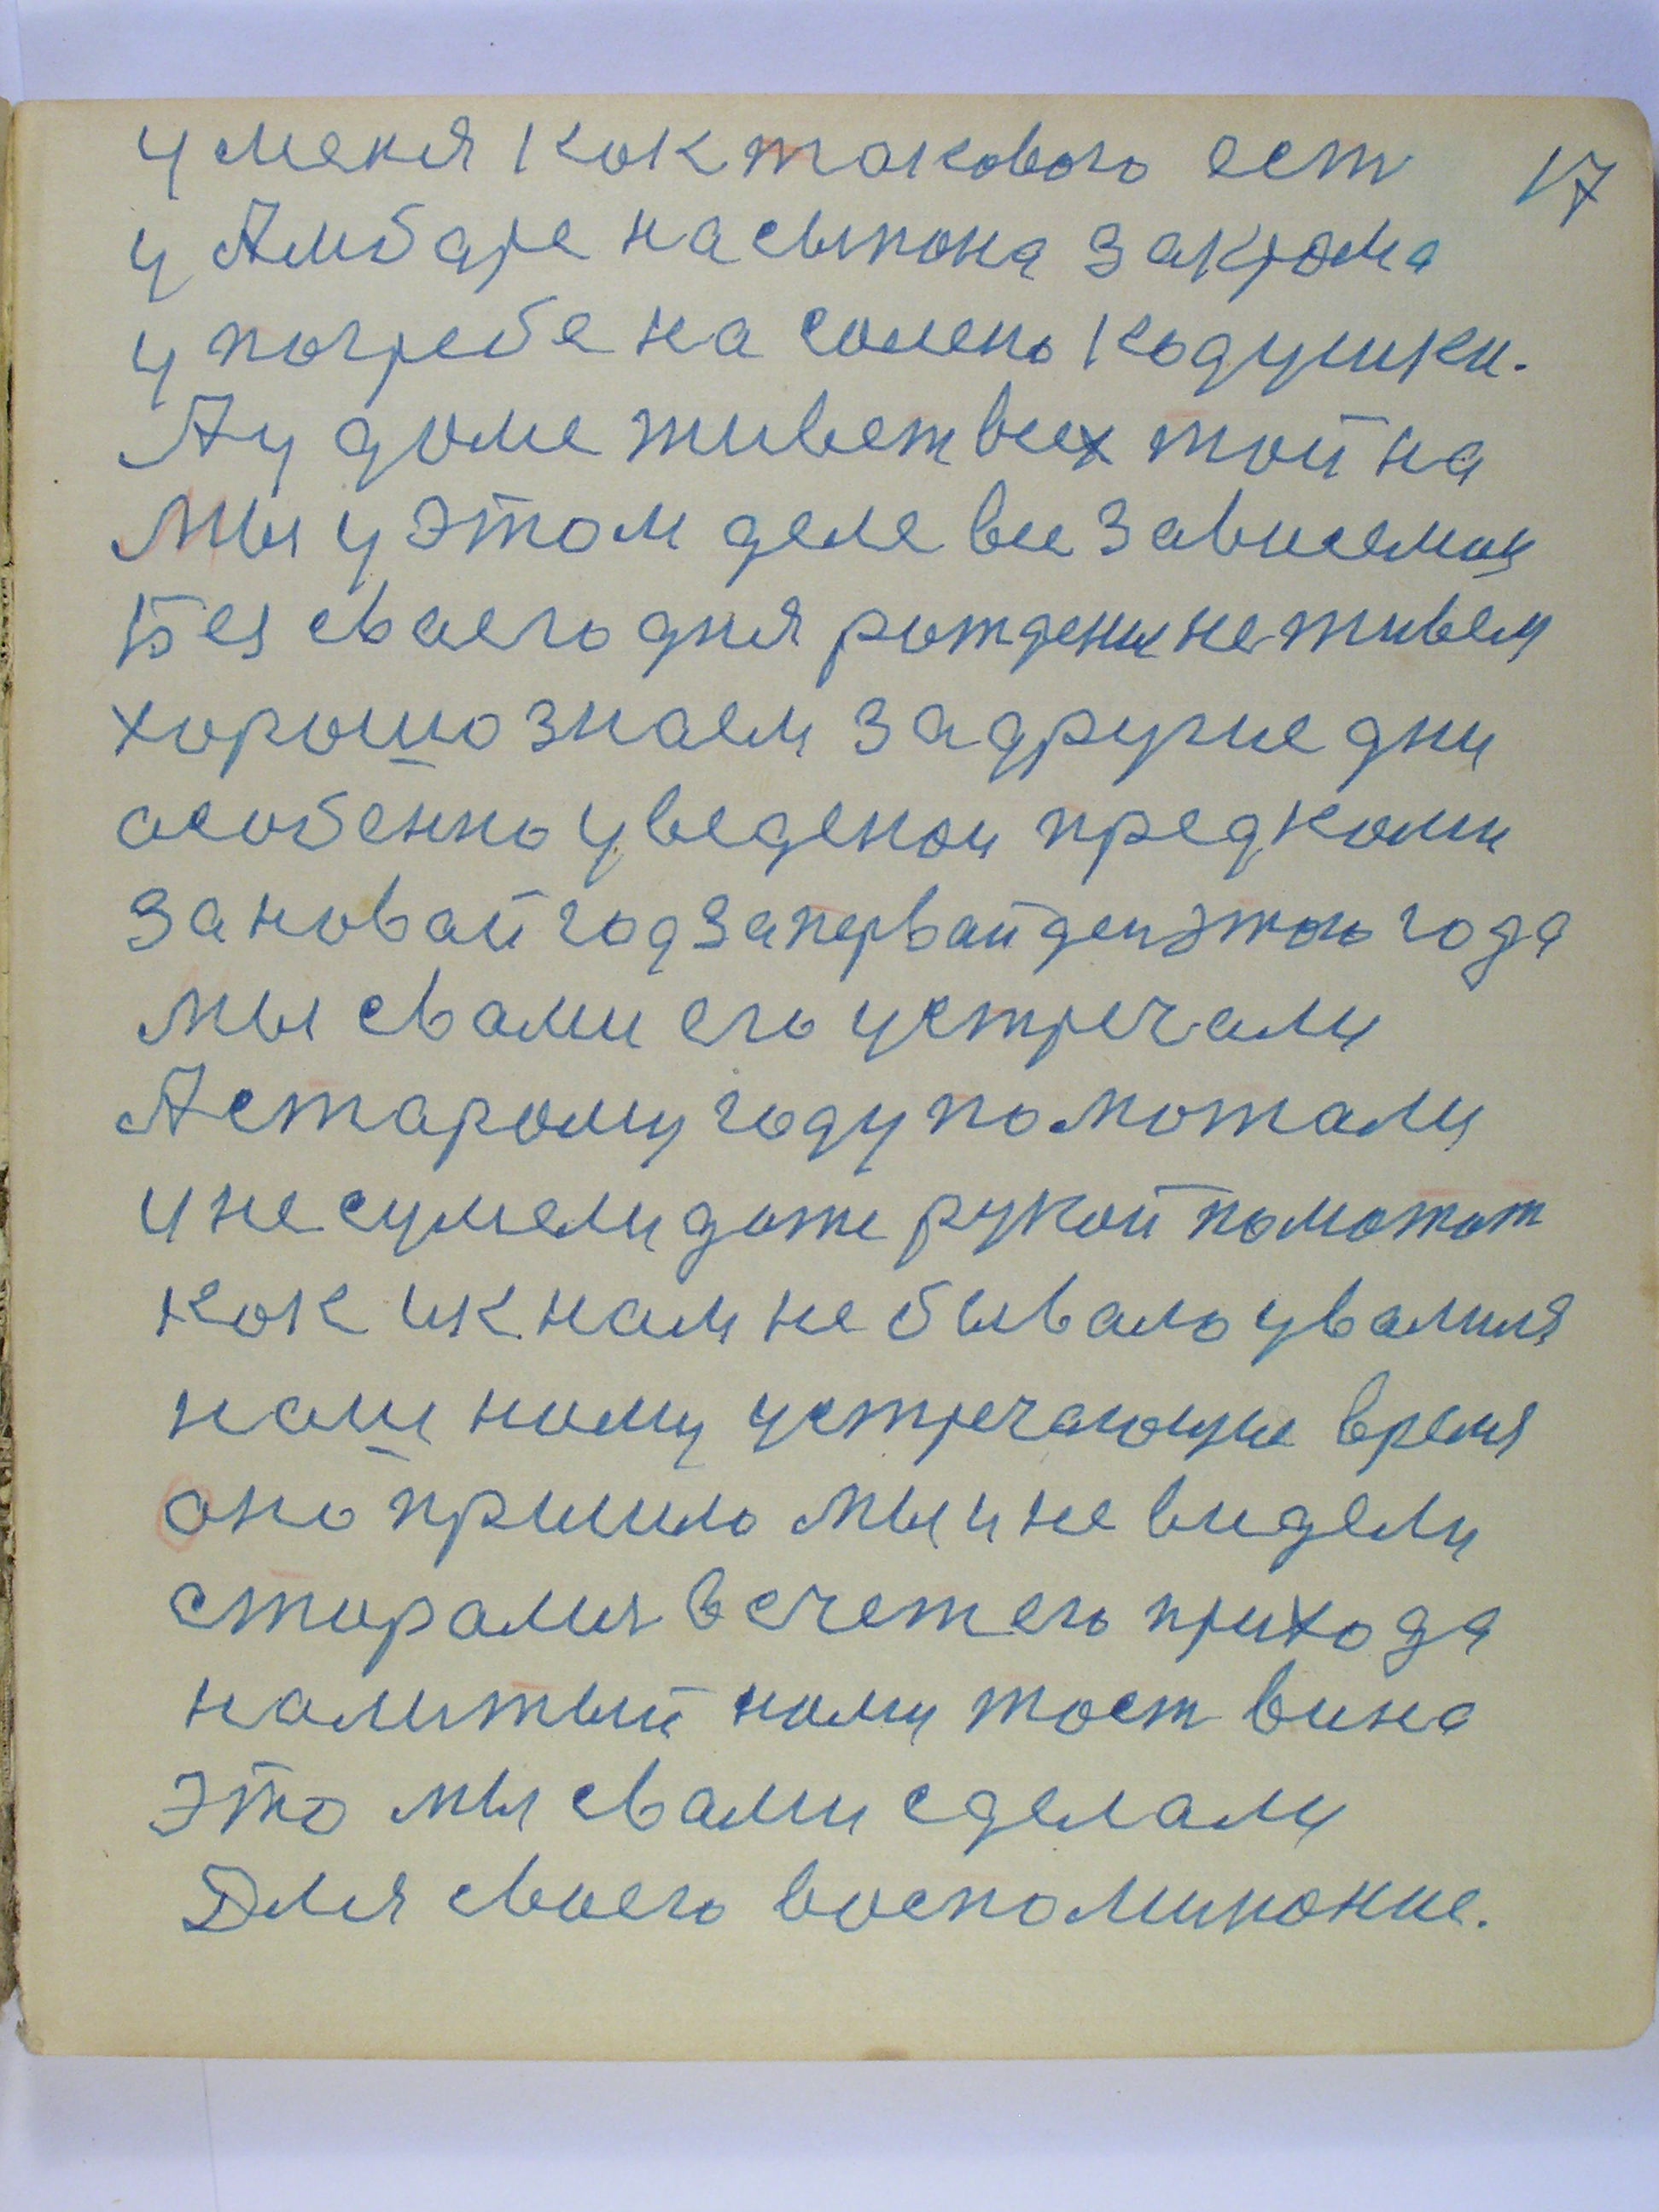 у меня кок токового ест 17
у Амбаре насыпона закрома
у погребе на солено кодушки.
Ау доме живет всех тойна
Мы у этом деле все зависемои
Без сваего дня рождения не живем
хорошо знаем за другие дни
особенно уведенои предкоми
за новай год за первай ден этого года
мы свами его устречали
А старому году по мотали
и не сумели доже рукой помотат
кок ик нам не бывало увалиля
наш ному устречающие время
оно пришло мы и не видели
сторалия в счет его прихода
налитый ному тост вина
это мы свами сделали
Для своего воспоминоние.